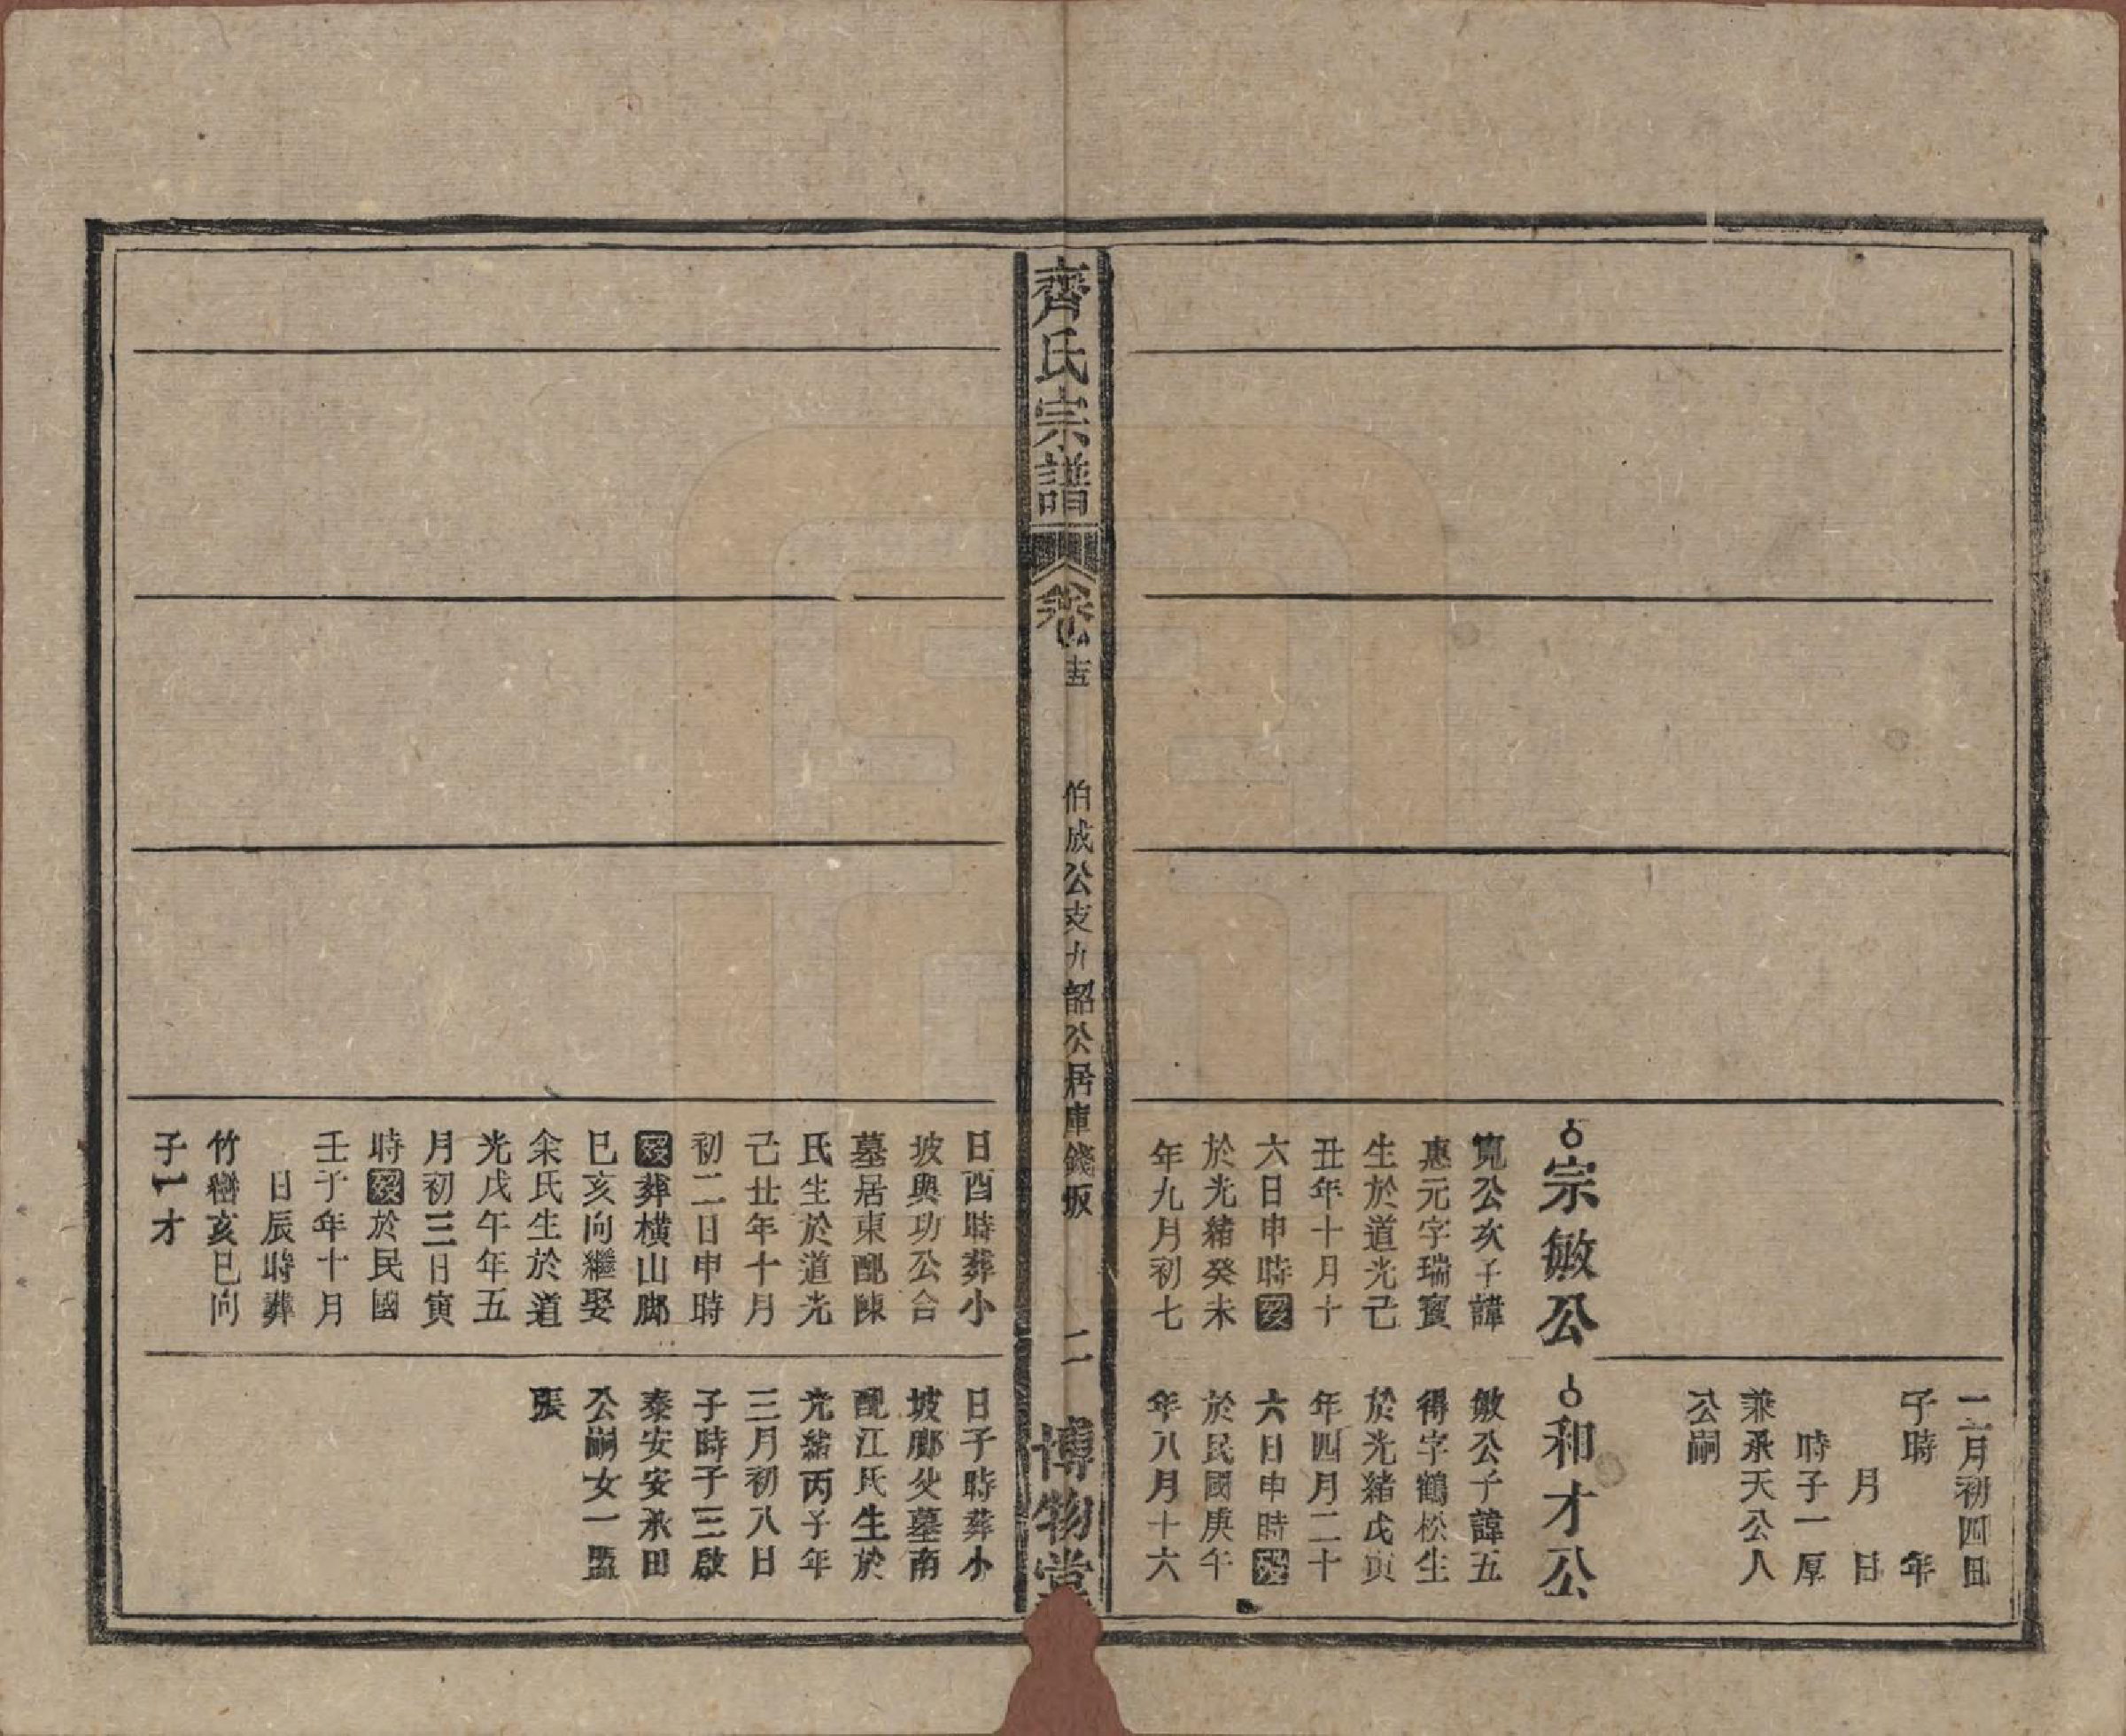 二月初四日
子時　年
月　日
時子一厚
兼承天公人
公嗣
宗敏公
寬公亥子諱
惠元字瑞寶
生於道光己
丑年十月十
六日申時歿
於光緒癸未
年九月初七
和才公
敏公子諱五
得字鶴松生
於光緒戊寅
年四月二十
六日申時歿
於民國庚午
年八月十六
齊氏宗譜
卷十五
伯成公支九韶公居庫錢坂
二
博物堂
日酉時葬小
坡與功公合
墓居東配陳
氏生於道光
己丑年十月
初二日申時
歿葬橫山鄉
巳亥向繼娶
余氏生於道
光戊午年五
月初三日寅
時歿於民國
壬子年十月
日辰時葬
竹巒亥巳向
子一才
日子時葬小
坡鄉父墓南
配江氏生於
光緒丙子年
三月初八日
子時子三啟
泰安安承田
公嗣女一
張